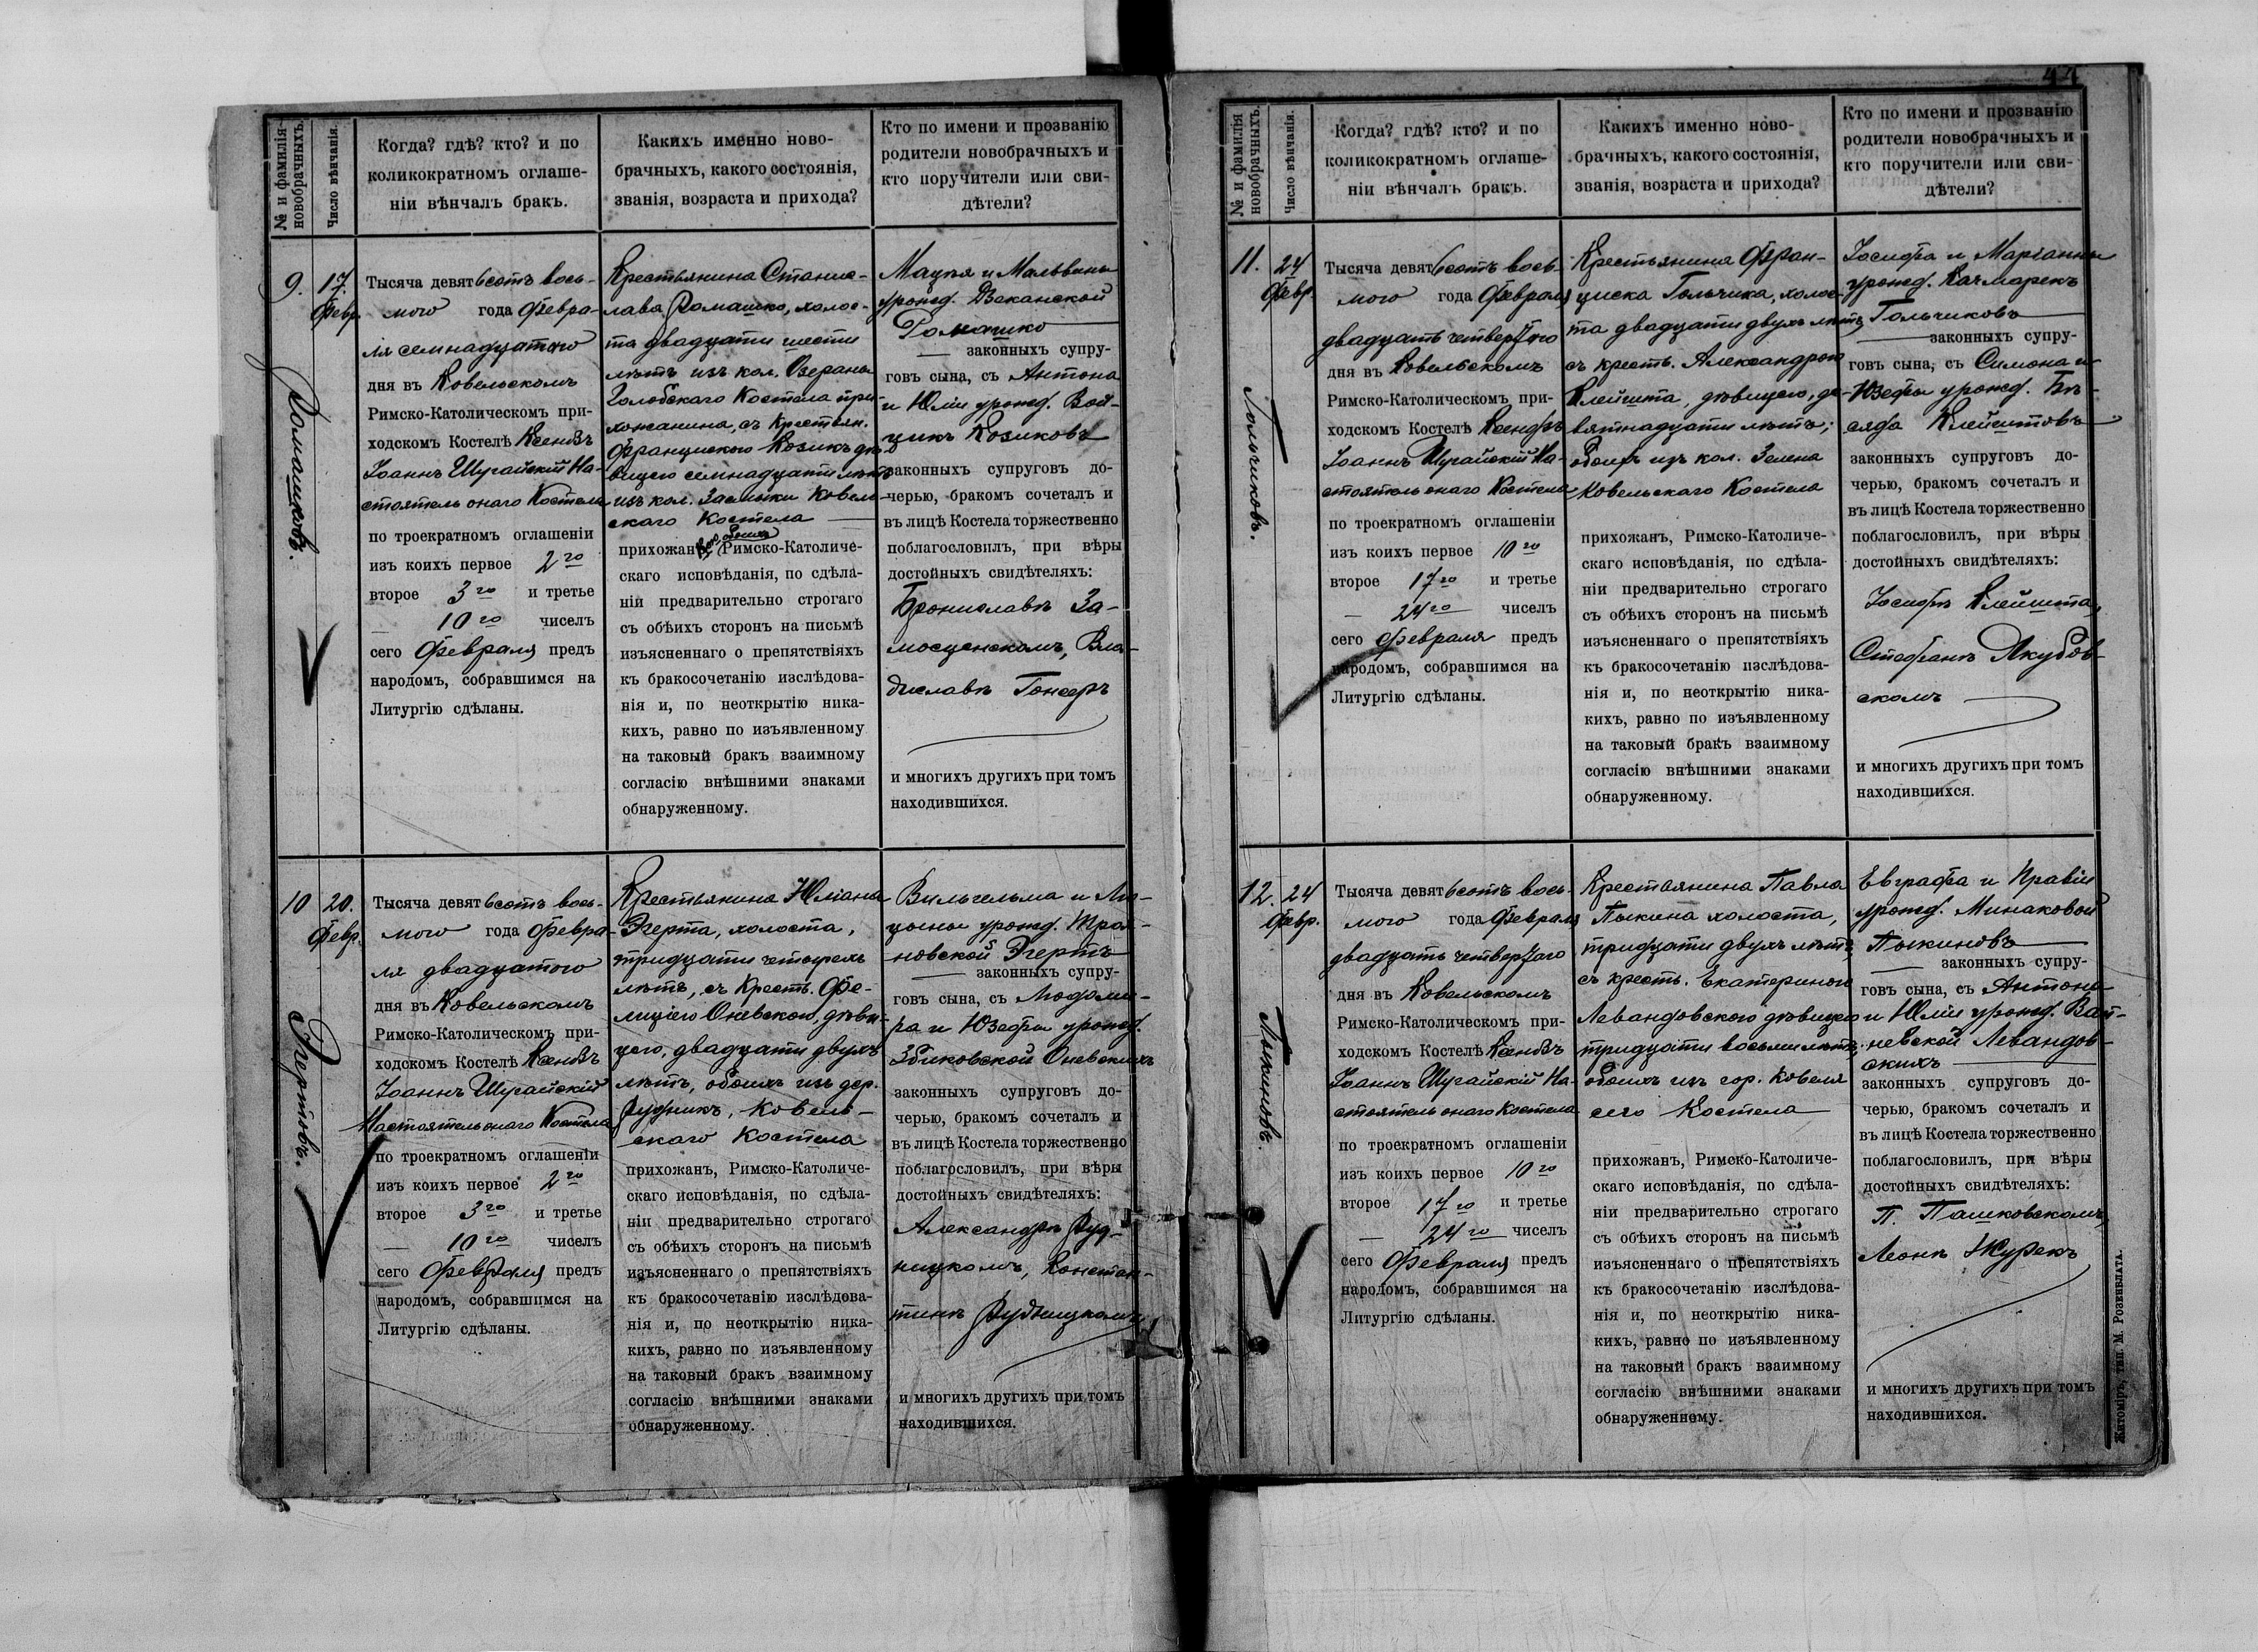 № и фамилія новобрачныхъ.
Число вѣнчанія.
Когда? гдѣ? кто? и по
коликократномъ оглаше-
ніи вѣнчалъ бракъ.
Какихъ именно ново-
брачныхъ, какого состоянія,
званія, возраста и прихода?
Кто по имени и прозванію
родители новобрачныхъ и
кто поручители или сви-
дѣтели?
9.
Ромашковъ.
17.
Февр.
Тысяча девятьсотъ вось-
мого года Февра-
ля семнадцатаго
дня въ Ковельскомъ
Римско-Католическомъ при-
ходскомъ Костелѣ Ксендзъ
Іоаннъ Шугайскій На-
стоятель онаго Костела
по троекратномъ оглашеніи
изъ коихъ первое 2го
второе 3го и третье
10го чиселъ
сего Февраля предъ
народомъ, собравшимся на
Литургію сдѣланы.
Крестьянина Станис-
лава Ромашко, холос-
та двадцати шести
лѣтъ изъ кол. Озераны
Голобскаго Костела при-
хожанина, съ Крестьян.
Францискою Козикъ дѣ-
вицею семнадцати лѣтъ
изъ кол. Засмыки Ковель-
скаго Костела
прихожанъ, обоихъ Римско-Католиче-
скаго исповѣданія, по сдѣла-
ніи предварительно строгаго
съ обѣихъ сторонъ на письмѣ
изъясненнаго о препятствіяхъ
къ бракосочетанію изслѣдова-
нія и, по неоткрытію ника-
кихъ, равно по изъявленному
на таковый бракъ взаимному
согласію внѣшними знаками
обнаруженному.
Мацѣя и Мальвины
урожд. Дзеканской
Ромашко
законныхъ супру-
говъ сына, съ Антона
и Юліи урожд. Вой-
цикъ Козиковъ
законныхъ супруговъ до-
черью, бракомъ сочеталъ и
въ лицѣ Костела торжественно
поблагословилъ, при вѣры
достойныхъ свидѣтеляхъ:
Брониславѣ За-
мосценскомъ, Вла-
диславѣ Гонсеръ
и многихъ другихъ при томъ
находившихся.
10
Эгертовъ.
20.
Февр.
Тысяча девятьсотъ вось-
мого года Февра-
ля двадцатого
дня въ Ковельскомъ
Римско-Католическомъ при-
ходскомъ Костелѣ Ксендзъ
Іоаннъ Шугайскій
Настоятель онаго Костела
по троекратномъ оглашеніи
изъ коихъ первое 2го
второе 3го и третье
10го чиселъ
сего Февраля предъ
народомъ, собравшимся на
Литургію сдѣланы.
Крестьянина Юліана
Эгерта, холоста,
тридцати четырехъ
лѣтъ, съ Крест. Фе-
лиціею Оневскою, дѣви-
цею, двадцати двухъ
лѣтъ, обоихъ изъ дер.
Рудникъ, Ковель-
скаго Костела
прихожанъ, Римско-Католиче-
скаго исповѣданія, по сдѣла-
ніи предварительно строгаго
съ обѣихъ сторонъ на письмѣ
изъясненнаго о препятствіяхъ
къ бракосочетанію изслѣдова-
нія и, по неоткрытію ника-
кихъ, равно по изъявленному
на таковый бракъ взаимному
согласію внѣшними знаками
обнаруженному.
Вильгельма и Лю-
цыны урожд. Троя-
новской Эгертъ
законныхъ супру-
говъ сына, съ Людоми-
ра и Юзефы урожд.
Збиковской Оневскихъ
законныхъ супруговъ до-
черью, бракомъ сочеталъ и
въ лицѣ Костела торжественно
поблагословилъ, при вѣры
достойныхъ свидѣтеляхъ:
Александрѣ Руд-
ницкомъ, Констан-
тинѣ Рудницкомъ
и многихъ другихъ при томъ
находившихся.
44
№ и фамилія новобрачныхъ.
Число вѣнчанія.
Когда? гдѣ? кто? и по
коликократномъ оглаше-
ніи вѣнчалъ бракъ.
Какихъ именно ново-
брачныхъ, какого состоянія,
званія, возраста и прихода?
Кто по имени и прозванію
родители новобрачныхъ и
кто поручители или сви-
дѣтели?
11.
Гольчиковъ.
24
Февр.
Тысяча девятьсотъ вось-
мого года Февраля
двадцать четвертого
дня въ Ковельскомъ
Римско-Католическомъ при-
ходскомъ Костелѣ Ксендзъ
Іоаннъ Шугайскій На-
стоятель онаго Костела
по троекратномъ оглашеніи
изъ коихъ первое 10го
второе 17го и третье
24го чиселъ
сего Февраля предъ
народомъ, собравшимся на
Литургію сдѣланы.
Крестьянина Фран-
циска Гольчика, холос-
та двадцати двухъ лѣтъ,
съ крест. Александрою
Клейшта, дѣвицею, де-
вятнадцати лѣтъ;
обоихъ изъ кол. Зелена
Ковельскаго Костела
прихожанъ, Римско-Католиче-
скаго исповѣданія, по сдѣла-
ніи предварительно строгаго
съ обѣихъ сторонъ на письмѣ
изъясненнаго о препятствіяхъ
къ бракосочетанію изслѣдова-
нія и, по неоткрытію ника-
кихъ, равно по изъявленному
на таковый бракъ взаимному
согласію внѣшними знаками
обнаруженному.
Іосифа и Маріанны
урожд. Качмарекъ
Гольчиковъ
законныхъ супру-
говъ сына, съ Симона и
Юзефы урожд. Бѣ-
сяда Клейштовъ
законныхъ супруговъ до-
черью, бракомъ сочеталъ и
въ лицѣ Костела торжественно
поблагословилъ, при вѣры
достойныхъ свидѣтеляхъ:
Іосифѣ Клейшта,
Стефанѣ Якубов-
скомъ
и многихъ другихъ при томъ
находившихся.
12.
Пыкиновъ.
24
Февр.
Тысяча девятьсотъ вось-
мого года Февраля
двадцать четвертого
дня въ Ковельскомъ
Римско-Католическомъ при-
ходскомъ Костелѣ Ксендзъ
Іоаннъ Шугайскій На-
стоятель онаго Костела
по троекратномъ оглашеніи
изъ коихъ первое 10го
второе 17го и третье
24го чиселъ
сего Февраля предъ
народомъ, собравшимся на
Литургію сдѣланы.
Крестьянина Павла
Пыкина холоста,
тридцати двухъ лѣтъ,
съ крест. Екатериною
Левандовского дѣвицею
тридцати восьми лѣтъ,
обоихъ изъ гор. Ковеля
сего Костела
прихожанъ, Римско-Католиче-
скаго исповѣданія, по сдѣла-
ніи предварительно строгаго
съ обѣихъ сторонъ на письмѣ
изъясненнаго о препятствіяхъ
къ бракосочетанію изслѣдова-
нія и, по неоткрытію ника-
кихъ, равно по изъявленному
на таковый бракъ взаимному
согласію внѣшними знаками
обнаруженному.
Евграфа и Правіи
урожд. Минаковой
Пыкиновъ
законныхъ супру-
говъ сына, съ Антона
и Юліи урожд. Вай-
невской Левандов-
скихъ
законныхъ супруговъ до-
черью, бракомъ сочеталъ и
въ лицѣ Костела торжественно
поблагословилъ, при вѣры
достойныхъ свидѣтеляхъ:
П. Пашковскомъ,
Леонѣ Журекъ
и многихъ другихъ при томъ
находившихся.
Житоміръ, тип. М. Розенблата.